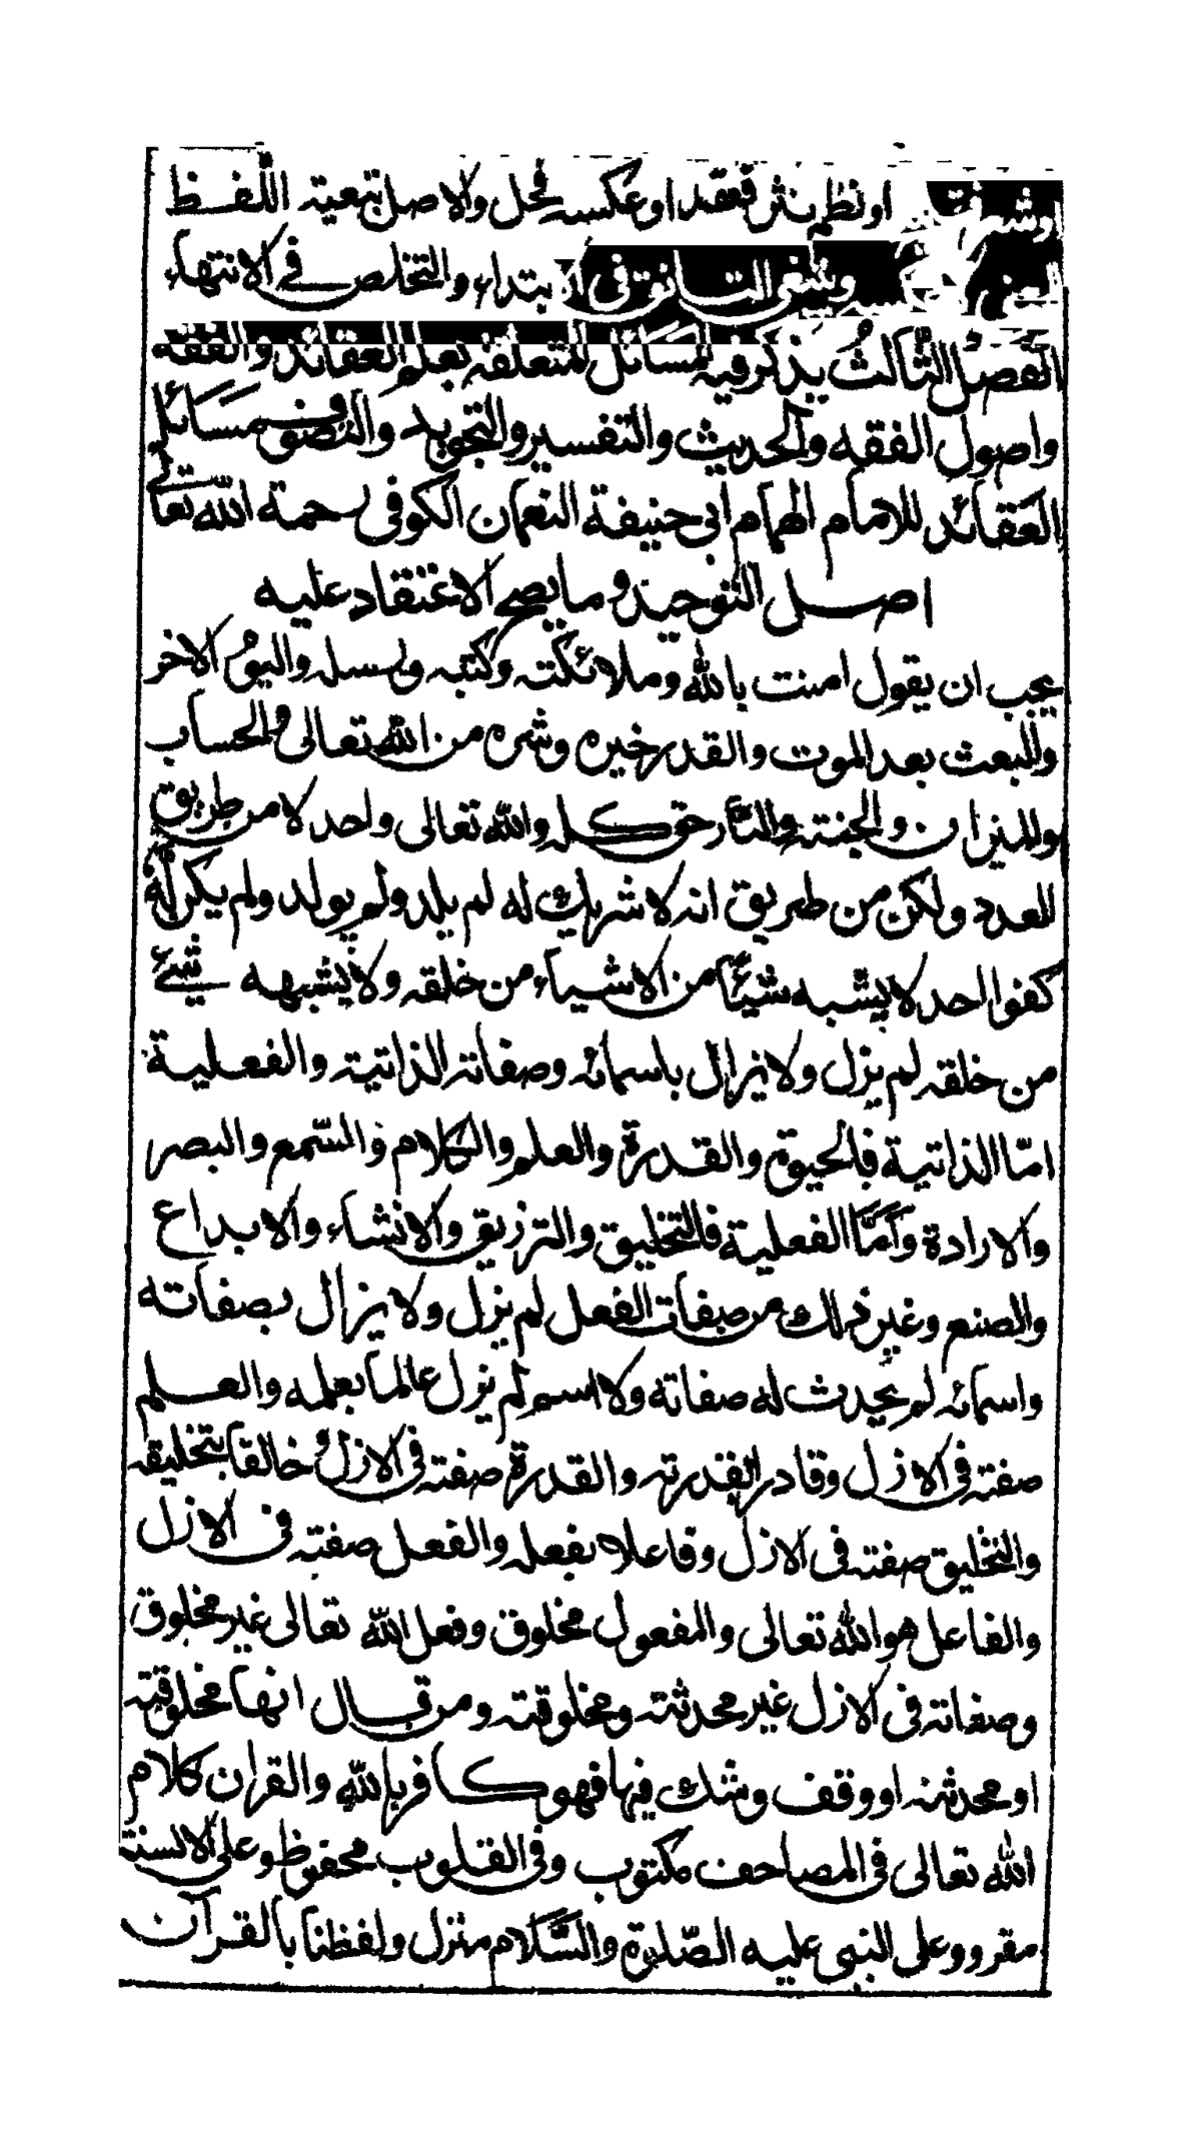 او نظم نثر فعقد او عكسه فحل والاصل تبعية اللفظ
وينبغي التانق في الابتداء والتخلص في الانتهاء
الفصل الثالث يذكر فيه المسائل المتعلقة بعلم العقائد والفقه
واصول الفقه والحديث والتفسير والتجويد والتصوف مسائل
العقائد للامام الهمام ابي حنيفة النعمان الكوفي رحمة الله تعالى
اصل التوحيد وما يصح الاعتقاد عليه
يجب ان يقول امنت بالله وملائكته وكتبه ورسله واليوم الاخر
والبعث بعد الموت والقدر خيره وشره من الله تعالى والحساب
والميزان والجنة والنار حق كله والله تعالى واحد لا من طريق
العدد ولكن من طريق انه لا شريك له لم يلد ولم يولد ولم يكن له
كفوا احد لا يشبه شيئا من الاشياء من خلقه ولا يشبهه شيئ
من خلقه لم يزل ولا يزال باسمائه وصفاته الذاتية والفعلية
امّا الذاتية فالحيوة والقدرة والعلم والكلام والسّمع والبصر
والارادة وأمّا الفعلية فالتخليق والترزيق والانشاء والابداع
والصنع وغير ذلك من صفات الفعل لم يزل ولا يزال بصفاته
واسمائه لم يحدث له صفاته ولا اسم لم يزل عالما بعلمه والعلم
صفته في الازل وقادرا بقدرته والقدرة صفته في الازل وخالقا بتخليقه
والتخليق صفته في الازل وفاعلا بفعله والفعل صفته في الازل
والفاعل هو الله تعالى والمفعول مخلوق وفعل الله تعالى غير مخلوق
وصفاته في الازل غير محدثة ومخلوقة ومن قال انها مخلوقة
او محدثة او وقف وشك فيها فهو كافر بالله والقران كلام
الله تعالى في المصاحف مكتوب وفي القلوب محفوظ وعلى الالسنة
مقرو وعلى النبي عليه الصّلوة والسّلام منزل ولفظنا بالقرآن